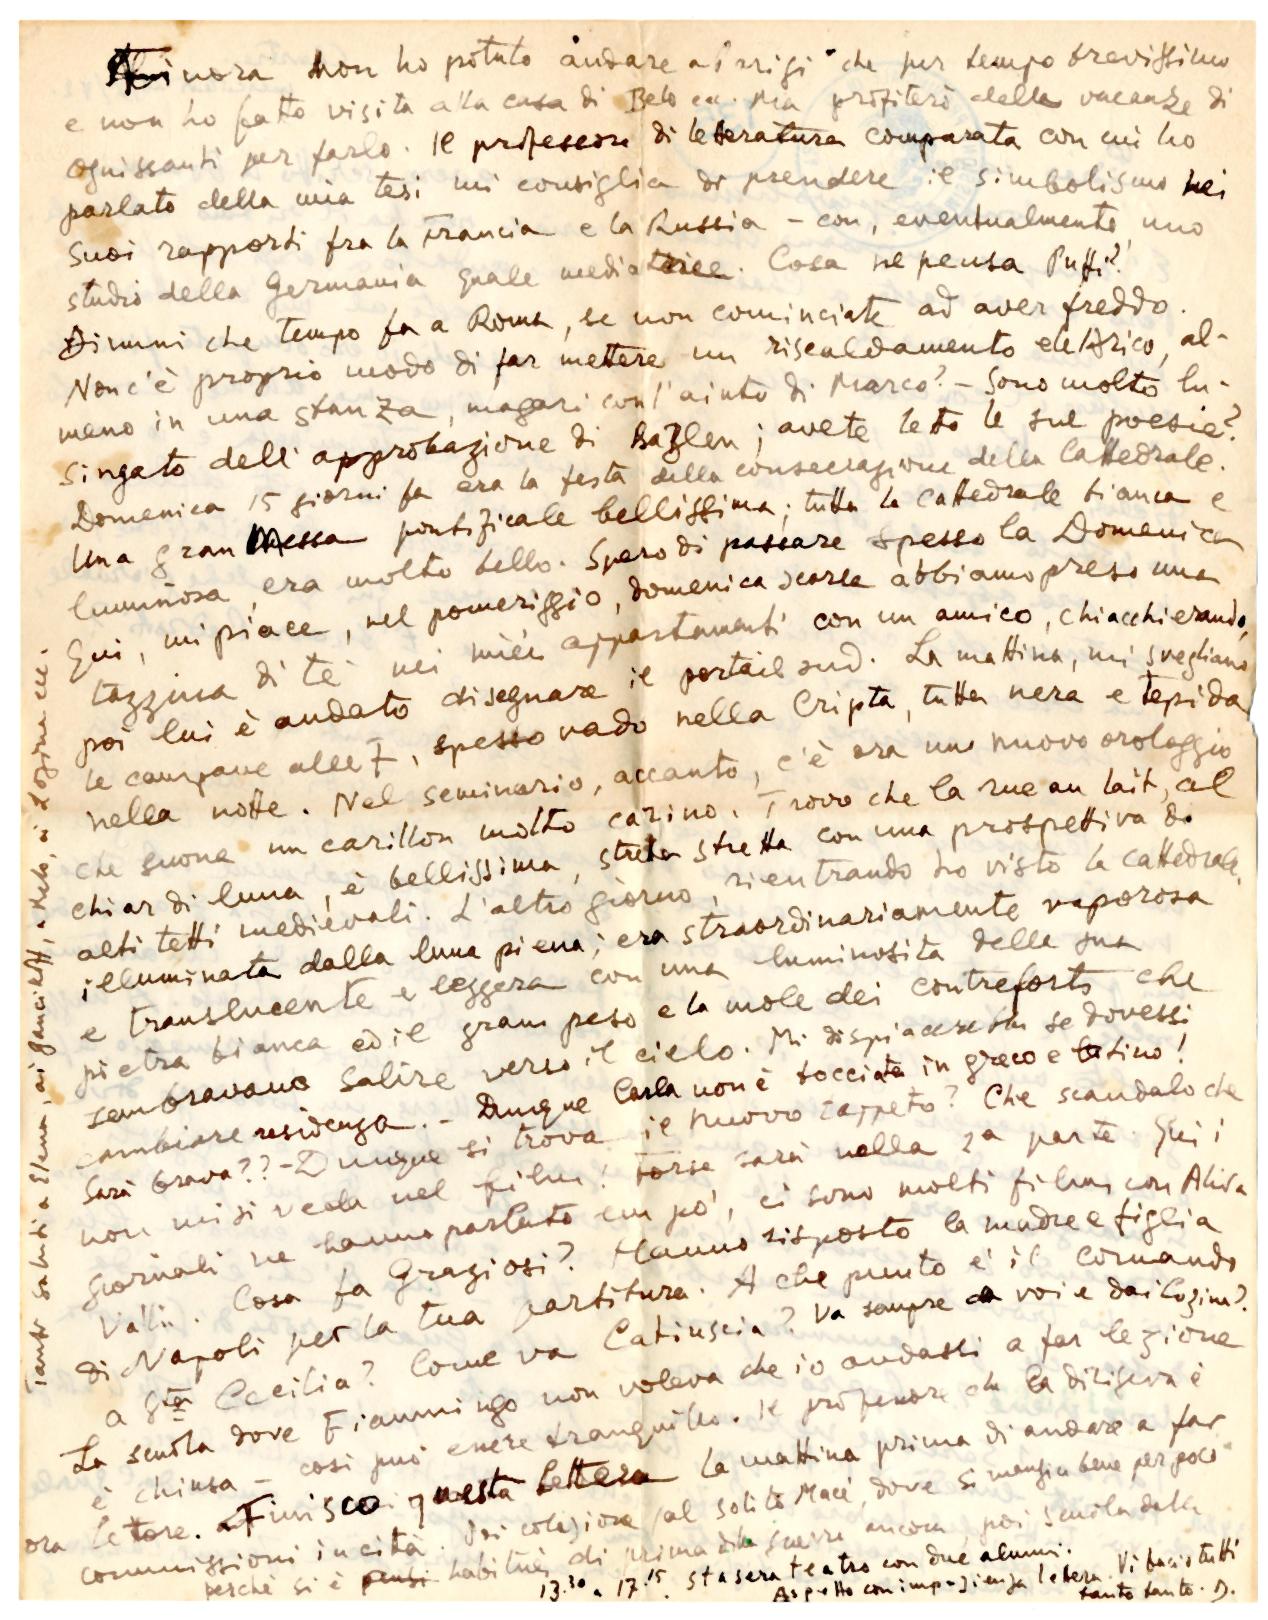 Finora non ho potuto andare a Parigi che per tempo brevissimo
e non ho fatto visita alla casa di Belo ecc. Ma profiterò delle vacanze di
ognissanti per farlo. Il professore di letteratura comparata con cui ho
parlato della mia tesi mi consiglia di prendere il simbolismo nei
suoi rapporti fra la Francia e la Russia – con, eventualmente, uno
studio della Germania quale mediatrice. Cosa ne pensa Puffi?
Dimmi che tempo fa a Roma, se non cominciate ad aver freddo.
Non c'è proprio modo di far mettere un riscaldamento elettrico, al-
meno in una stanza, magari con l'aiuto di Marco? – Sono molto lu-
singato dell'approbazione di Bazlen; avete letto le sue poesie?
Domenica 15 giorni fa era la festa della consecrazione della Cattedrale.
Una gran Messa pontificale bellissima; tutta la cattedrale bianca e
luminosa, era molto bello. Spero di passare spesso la Domenica
qui, mi piace, nel pomeriggio, domenica scorsa abbiamo preso una
tazzina di tè nei miei appartamenti con un amico, chiacchierando,
poi lui è andato disegnare il portail sud. La mattina, mi svegliano
le campane alle 7, spesso vado nella Cripta, tutta nera e tepida
nella notte. Nel seminario, accanto, c'è ora un nuovo orologgio
che suona un carillon molto carino. Trovo che la rue au lait, al
chiar di luna, è bellissima, stretta stretta con una prospettiva di
alti tetti medievali. L'altro giorno, rientrando ho visto la cattedrale,
illuminata dalla luna piena; era straordinariamente vaporosa
e translucente e leggera con una luminosità della sua
pietra bianca ed il gran peso e la mole dei contreforts che
sembravano salire verso il cielo. Mi dispiacerebbe se dovessi
cambiare residenza. – Dunque Carla non è bocciata in greco e latino!
Sarà brava?? – Dunque si trova il nuovo zappeto? Che scandalo che
non mi si veda nel film! Forse sarà nella 2a parte. Qui i
giornali ne hanno parlato un pò, ci sono molti films con Alida
Valli. Cosa fa Graziosi? Hanno risposto la madre e figlia
di Napoli per la tua partitura. A che punto è il Comando
a Sta Cecilia? Come va Catiuscia? Va sempre da voi e dai Cozina?
La scuola dove Fiammingo non voleva che io andassi a far lezione
è chiusa – così può essere tranquillo. Il professore che la dirigeva è
ora lettore. Finisco questa lettera la mattina prima di andare a far
commissioni in città. Poi colazione al solito Macé, dove si mangia bene per poco
perchè si è habitué di prima della guerra ancora, poi scuola dalle
13.30 a 17.15. Stasera teatro con due alunni.
Aspetto con impazienza lettera. Vi bacio tutti
tanto tanto. D.
Tanti saluti a Elena, ai a Keto, ai Cozina ecc.